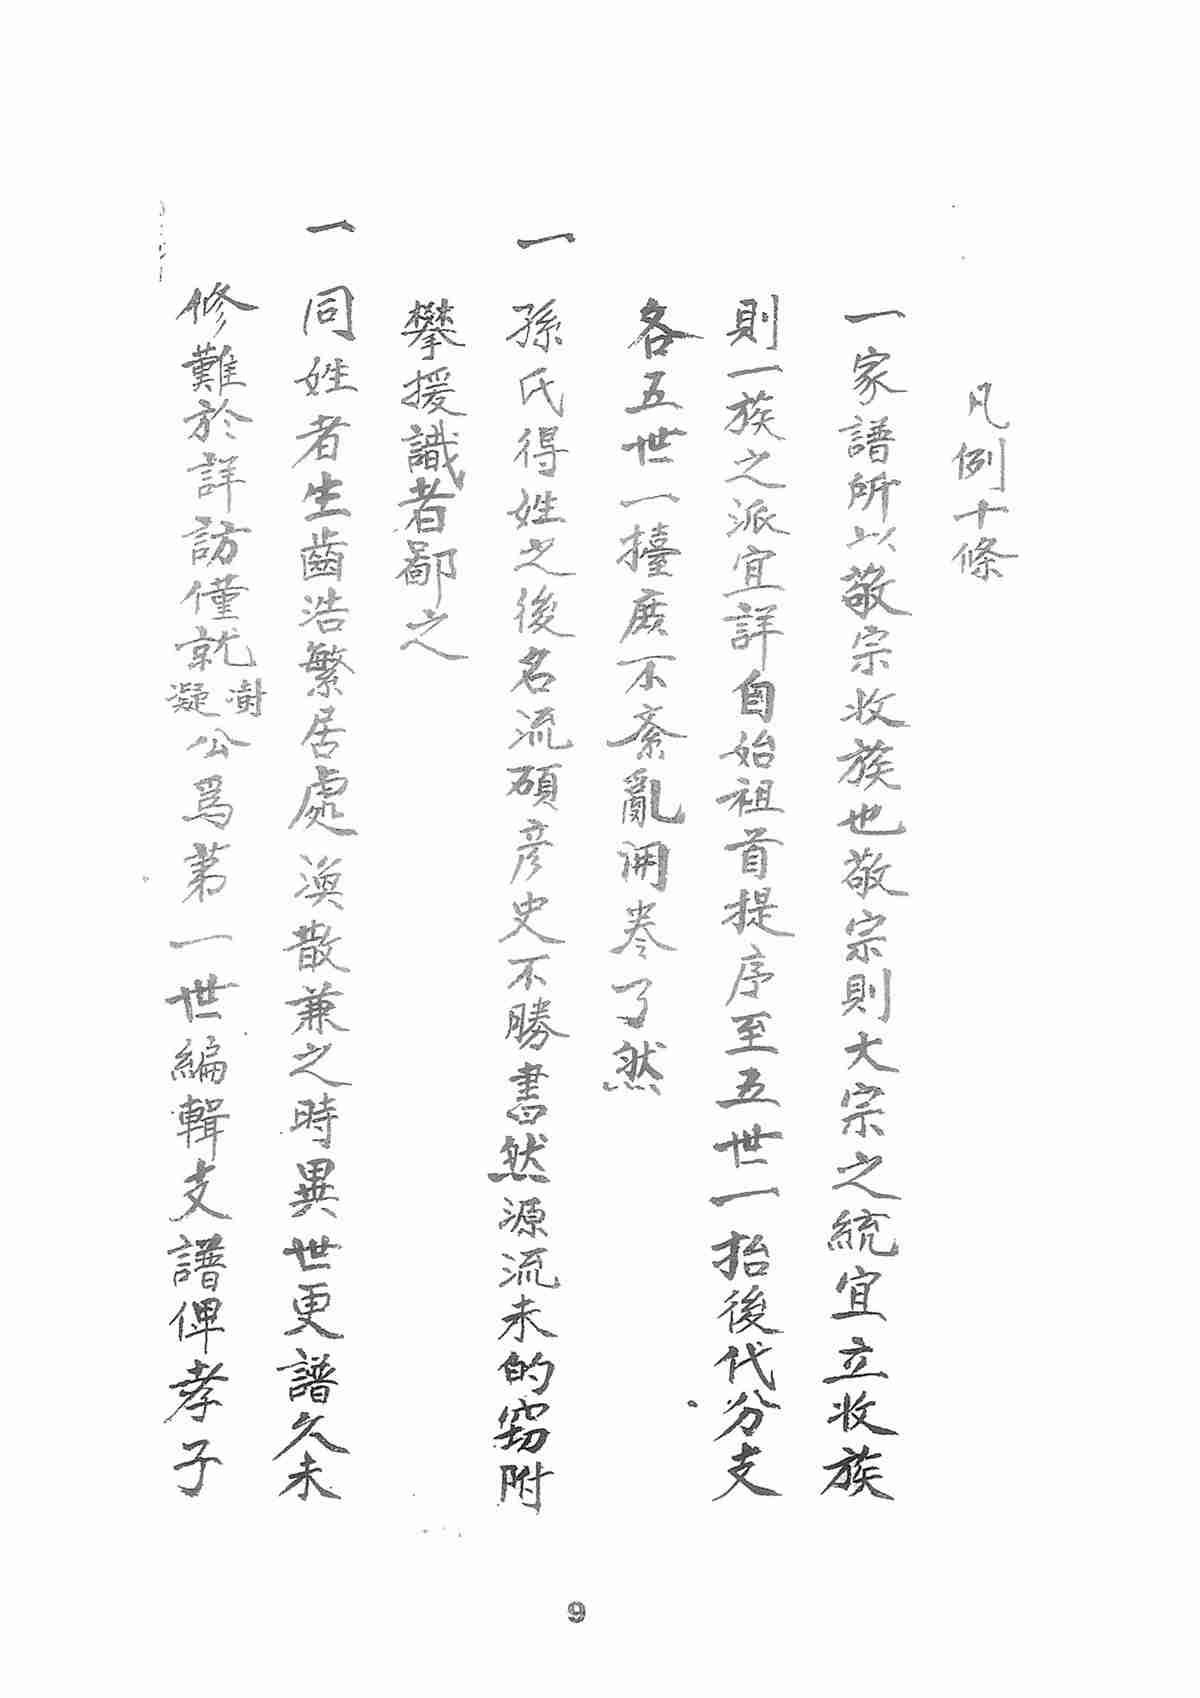 凡例十條
一家譜所以敬宗收族也敬宗則大宗之統宜立收族
則一族之派宜詳自始祖首提序至五世一抬後代分支
各五世一擡庶不紊亂開卷了然
一孫氏得姓之後名流碩彦史不勝書然源流未的竊附
攀援識者鄙之
一同姓者生齒浩繁居處渙散兼之時異世更譜久未
修難於詳訪僅就澍凝公爲第一世編輯支譜俾孝子
9